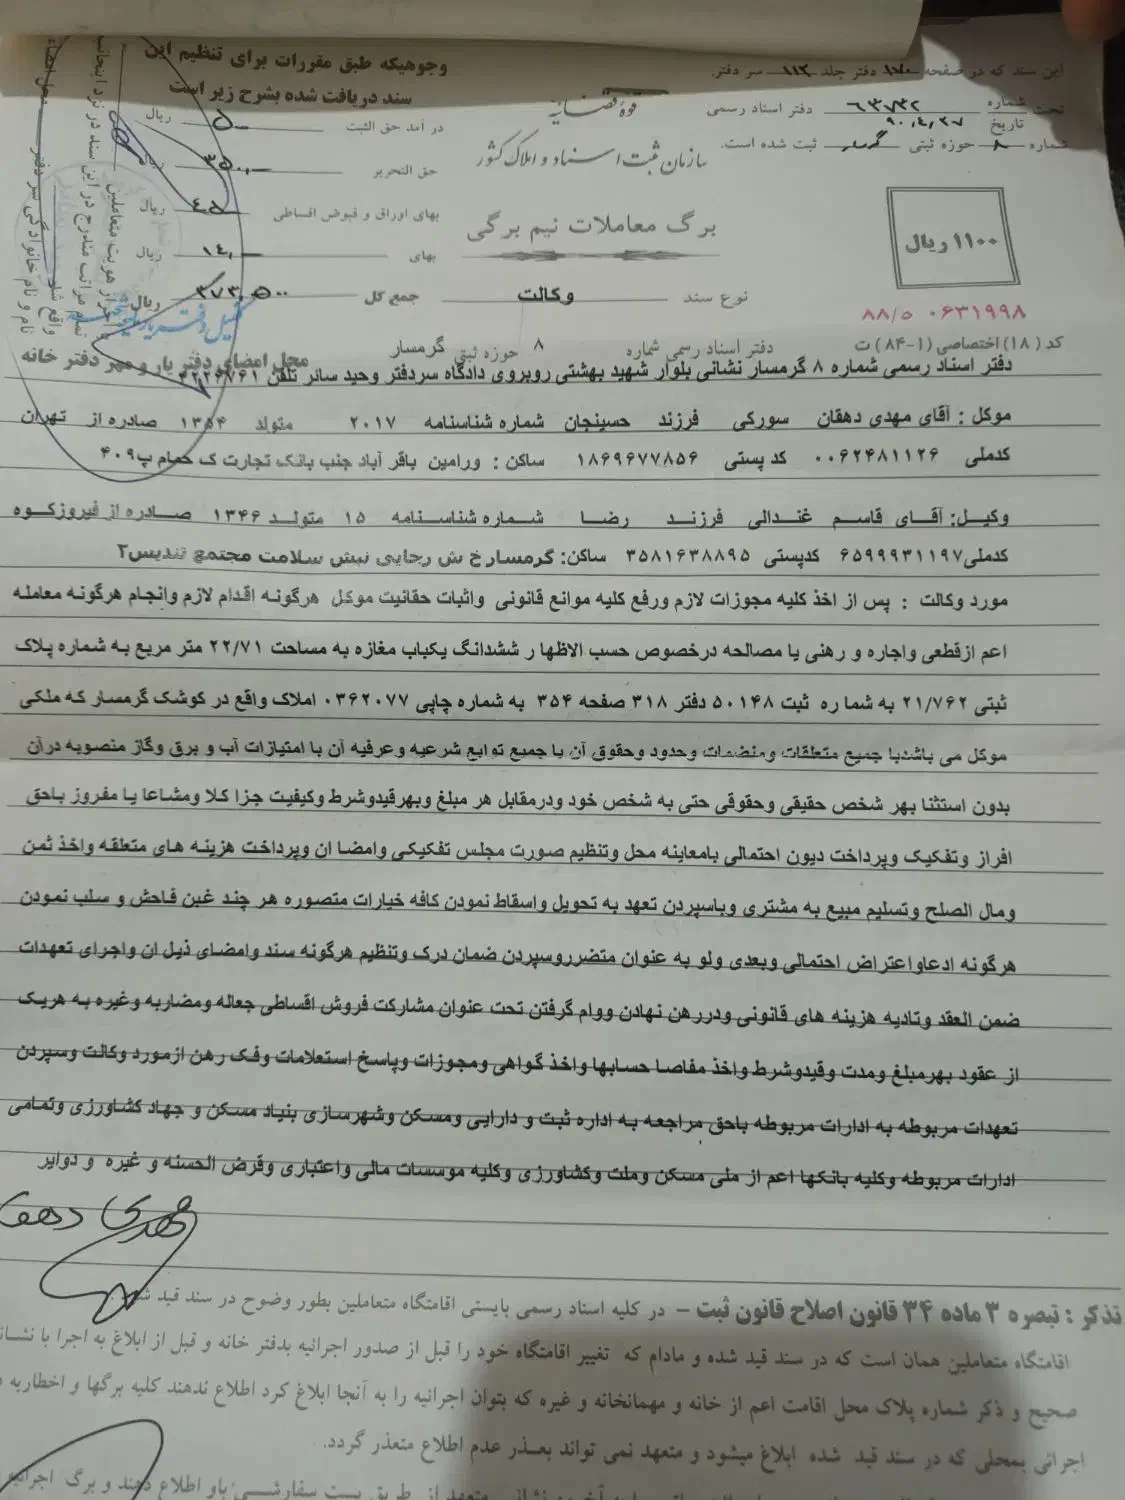 وجوهیکه طبق مقررات برای تنظیم این
سند دریافت شده بشرح زیر است
در آمد حق الثبت ریال
حق التحریر
بهای اوراق و قبوض اقساطی ریال
بهای ۱۴۰۰۰ ریال
جمع کل ۳۷۳,۵۰۰ ریال
این سند که در صفحه ۱۷۰ دفتر جلد ۱۱۲ سر دفتر.
تحت شماره ۶۳۷۳۲ دفتر اسناد رسمی
تاریخ ۹۰,۴,۲۷
شماره ۸ حوزه ثبتی گرمسار ثبت شده است.
قوه قضائیه
سازمان ثبت اسناد و املاک کشور
برگ معاملات نیم برگی
نوع سند وکالت
۱۱۰۰ ریال
۸۸/۵ ۰۶۳۱۹۹۸
کد (۱۸) اختصاصی (۱-۸۴) ت
دفتر اسناد رسمی شماره ۸ حوزه ثبتی گرمسار
محل امضای دفتر یار و مهر دفتر خانه
با احراز هویت متعاملین
تمام مراتب مندرج در این سند در نزد اینجانب
واقع شد
نام و نام خانوادگی سر دفتر محل امضاء
دفتر اسناد رسمی شماره ۸ گرمسار نشانی بلوار شهید بهشتی روبروی دادگاه سردفتر وحید سائر تلفن ۴۲۲۶۷۶۱
موکل : آقای مهدی دهقان سورکی فرزند حسینجان شماره شناسنامه ۲۰۱۷ متولد ۱۳۵۴ صادره از تهران
کدملی ۰۰۶۲۴۸۱۱۲۶ کد پستی ۱۸۶۹۶۷۷۸۵۶ ساکن : ورامین باقر آباد جنب بانک تجارت ک حمام پ۴۰۹
وکیل: آقای قاسم غندالی فرزند رضا شماره شناسنامه ۱۵ متولد ۱۳۴۶ صادره از فیروزکوه
کدملی۶۵۹۹۹۳۱۱۹۷ کدپستی ۳۵۸۱۶۳۸۸۹۵ ساکن: گرمسار خ ش رجایی نبش سلامت مجتمع تندیس۲
مورد وکالت : پس از اخذ کلیه مجوزات لازم ورفع کلیه موانع قانونی واثبات حقانیت موکل هرگونه اقدام لازم وانجام هرگونه معامله
اعم ازقطعی واجاره و رهنی یا مصالحه درخصوص حسب الاظها ر ششدانگ یکباب مغازه به مساحت ۲۲/۷۱ متر مربع به شماره پلاک
ثبتی ۲۱/۷۶۲ به شما ره ثبت ۵۰۱۴۸ دفتر ۳۱۸ صفحه ۳۵۴ به شماره چاپی ۰۳۶۲۰۷۷ املاک واقع در کوشک گرمسار که ملکی
موکل می باشدبا جمیع متعلقات ومنضمات وحدود وحقوق آن با جمیع توابع شرعیه وعرفیه آن با امتیازات آب و برق وگاز منصوبه درآن
بدون استثنا بهر شخص حقیقی وحقوقی حتی به شخص خود ودرمقابل هر مبلغ وبهرقیدوشرط وکیفیت جزا کلا ومشاعا یا مفروز باحق
افراز وتفکیک وپرداخت دیون احتمالی بامعاینه محل وتنظیم صورت مجلس تفکیکی وامضا ان وپرداخت هزینه های متعلقه واخذ ثمن
ومال الصلح وتسلیم مبیع به مشتری وباسپردن تعهد به تحویل واسقاط نمودن کافه خیارات متصوره هر چند غبن فاحش و سلب نمودن
هرگونه ادعاواعتراض احتمالی وبعدی ولو به عنوان متضرروسپردن ضمان درک وتنظیم هرگونه سند وامضای ذیل ان واجرای تعهدات
ضمن العقد وتادیه هزینه های قانونی ودررهن نهادن ووام گرفتن تحت عنوان مشارکت فروش اقساطی جعاله ومضاربه وغیره به هریک
از عقود بهرمبلغ ومدت وقیدوشرط واخذ مفاصا حسابها واخذ گواهی ومجوزات وپاسخ استعلامات وفک رهن ازمورد وکالت وسپردن
تعهدات مربوطه به ادارات مربوطه باحق مراجعه به اداره ثبت و دارایی ومسکن وشهرسازی بنیاد مسکن و جهاد کشاورزی وتمامی
ادارات مربوطه وکلیه بانکها اعم از ملی مسکن وملت وکشاورزی وکلیه موسسات مالی واعتباری وقرض الحسنه و غیره و دوایر
مهدی دهقا
تذکر : تبصره ۳ ماده ۳۴ قانون اصلاح قانون ثبت – در کلیه اسناد رسمی بایستی اقامتگاه متعاملین بطور وضوح در سند قید شود.
اقامتگاه متعاملین همان است که در سند قید شده و مادام که تغییر اقامتگاه خود را قبل از صدور اجرائیه بدفتر خانه و قبل از ابلاغ به اجرا با نشانی
صحیح و ذکر شماره پلاک محل اقامت اعم از خانه و مهمانخانه و غیره که بتوان اجرائیه را به آنجا ابلاغ کرد اطلاع ندهند کلیه برگها و اخطاریه
اجرائی بمحلی که در سند قید شده ابلاغ میشود و متعهد نمی تواند بعذر عدم اطلاع متعذر گردد.
متعهد از طریق پست سفارشی باو اطلاع دهند و برگ اجرائیه